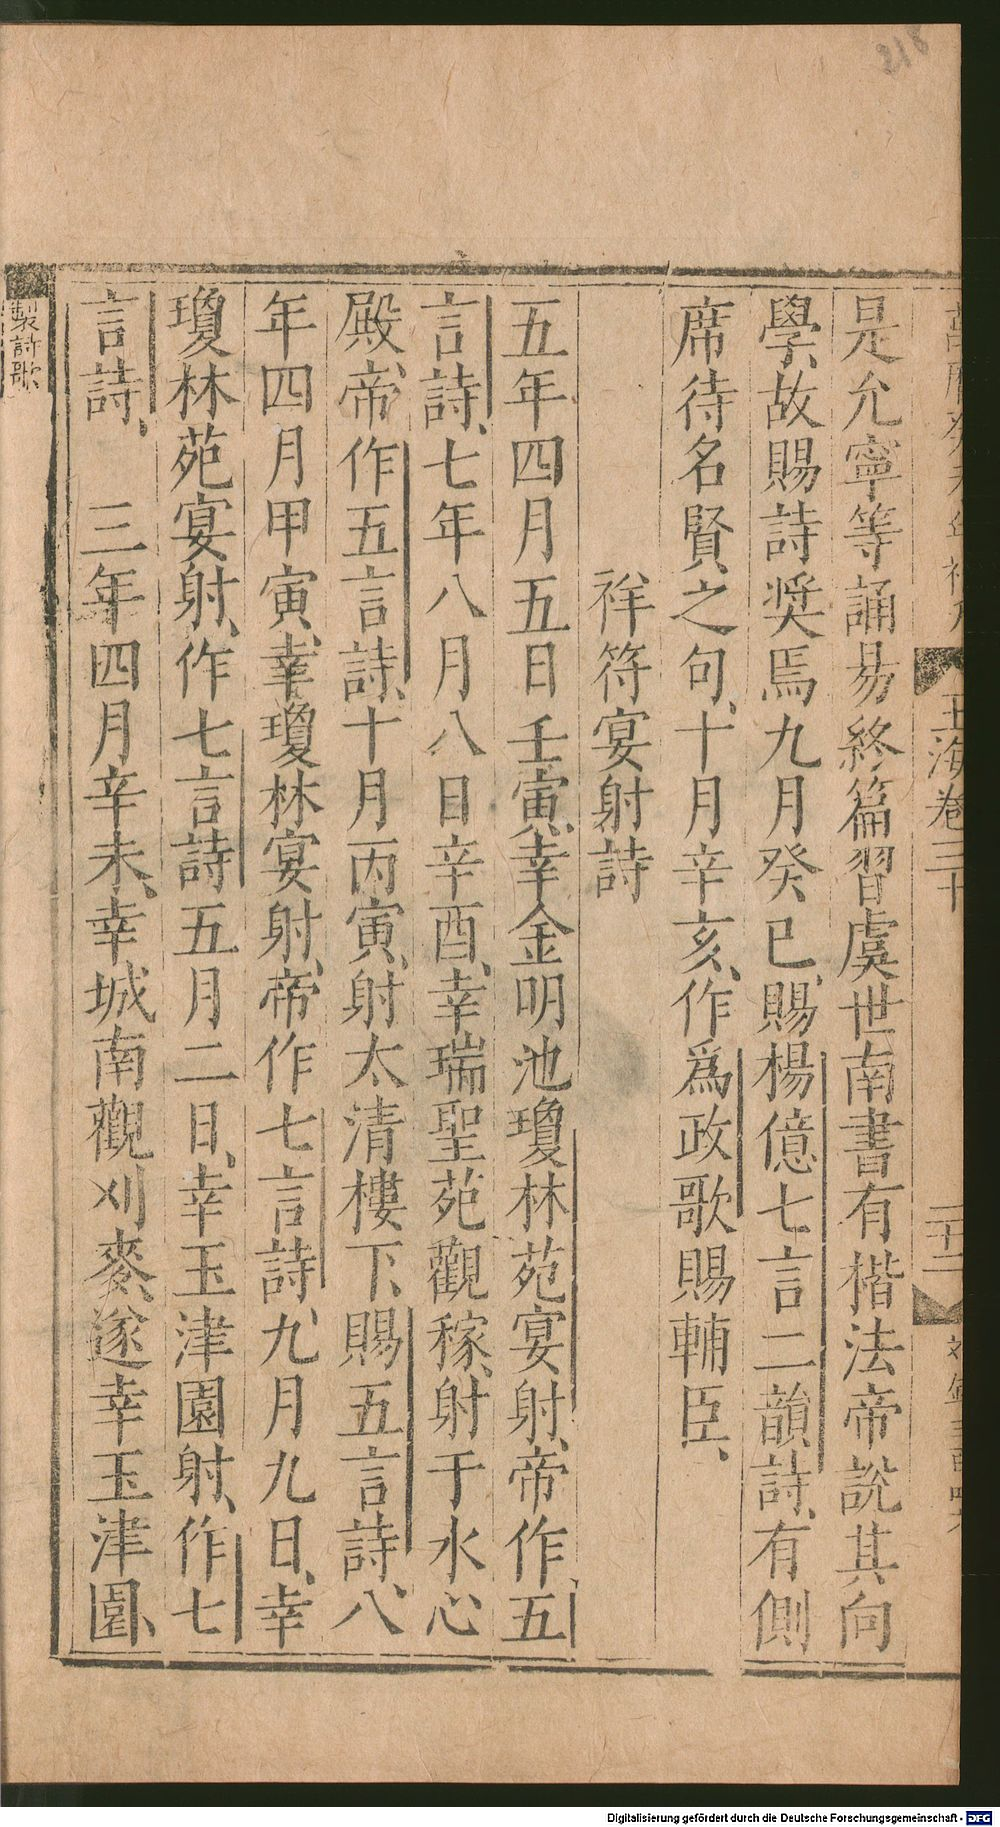 218
玉海卷三十
二十二
是允寧等誦易終篇習虞世南書有楷法帝說其向
學、故賜詩奬焉九月癸巳、賜楊億七言二韻詩、有側
席待名賢之句、十月辛亥、作爲政歌賜輔臣、
祥符宴射詩
五年四月五日壬寅、幸金明池瓊林苑宴射、帝作五
言詩、七年八月八日辛酉、幸瑞聖苑觀稼、射于水心
殿、帝作五言詩、十月丙寅、射太清樓下、賜五言詩、八
年四月甲寅、幸瓊林宴射、帝作七言詩、九月九日、幸
瓊林苑宴射、作七言詩五月二日、幸玉津園射、作七
言詩、 三年四月辛未、幸城南觀刈麥、遂幸玉津園、
製詩歌
Digitalisierung gefördert durch die Deutsche Forschungsgemeinschaft - DFG